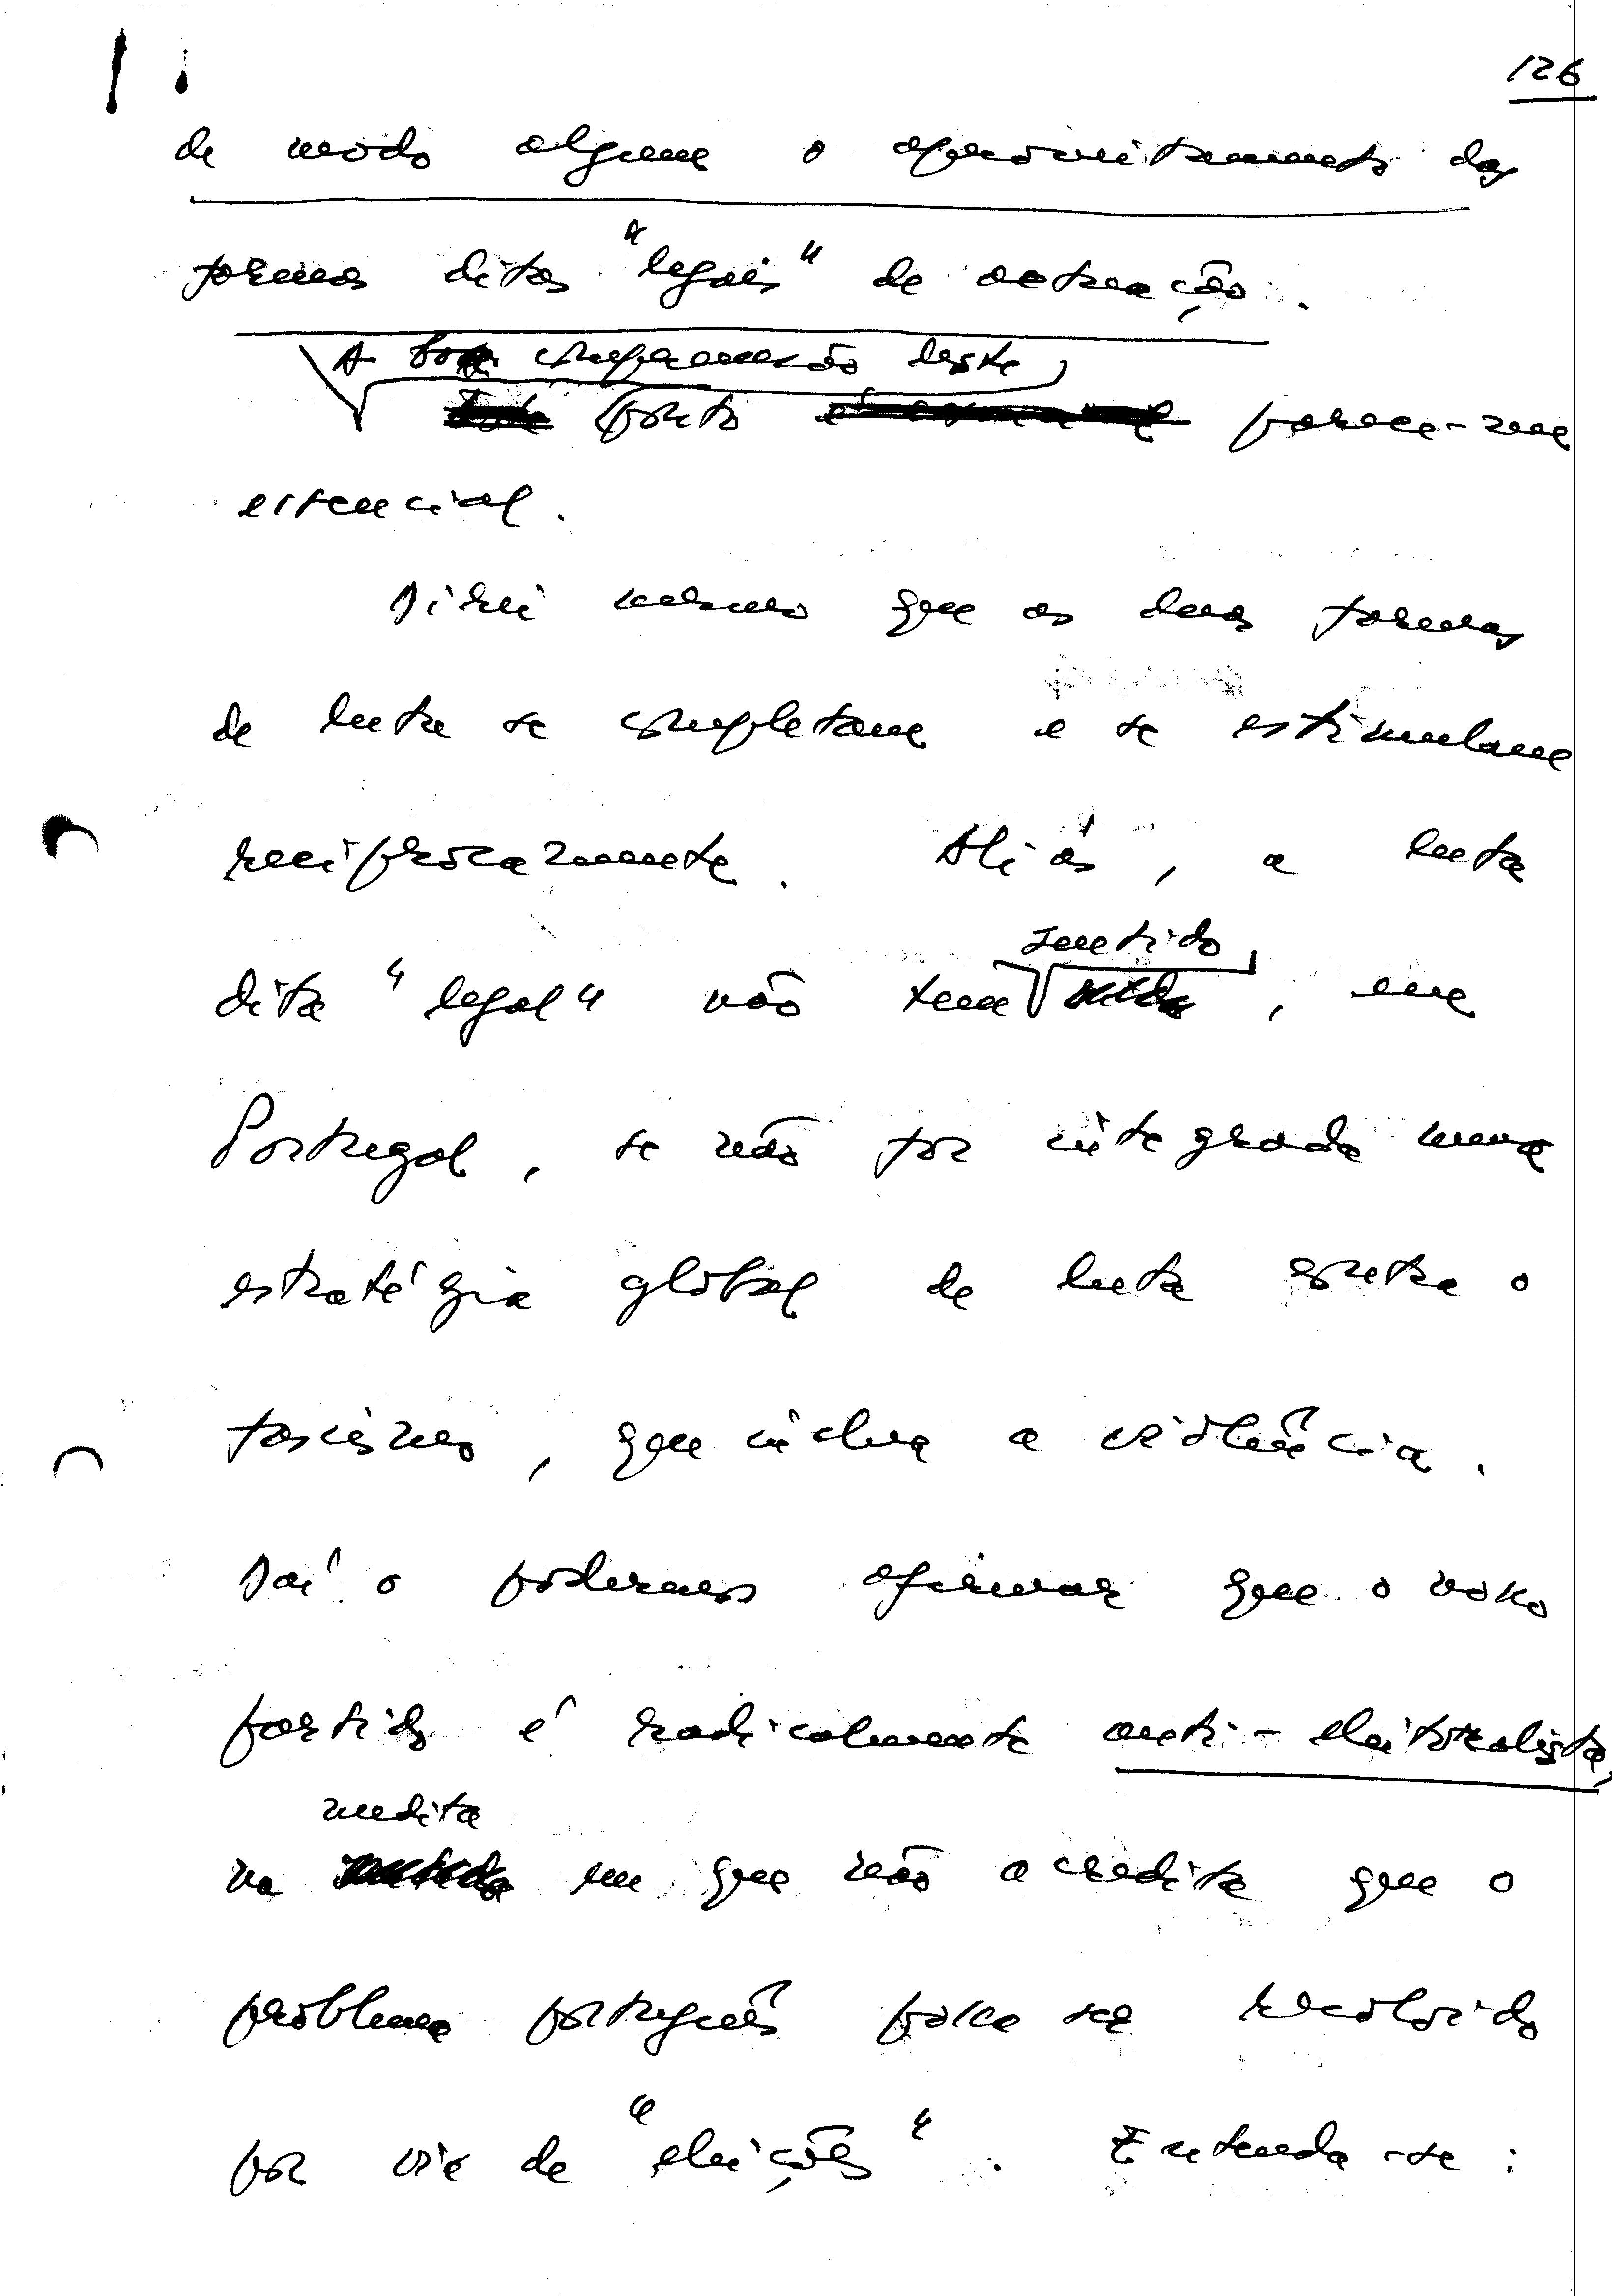 126
de modo algum o aproveitamento das
formas ditas "legais" de actuação.
A boa compreensão deste
ponto parece-me
essencial.
Direi mesmo que as duas formas
de luta se completam e se estimulam
reciprocamente. Aliás, a luta
sentido
dita "legal" não tem , em
Portugal, se não for integrada numa
estratégia global de luta contra o
fascismo, que inclua a violência.
Daí o podermos afirmar que o nosso
partido é radicalmente anti-eleitoralista,
medita
na em que não acredita que o
problema português possa ser resolvido
por via de "eleições". Entenda-se: